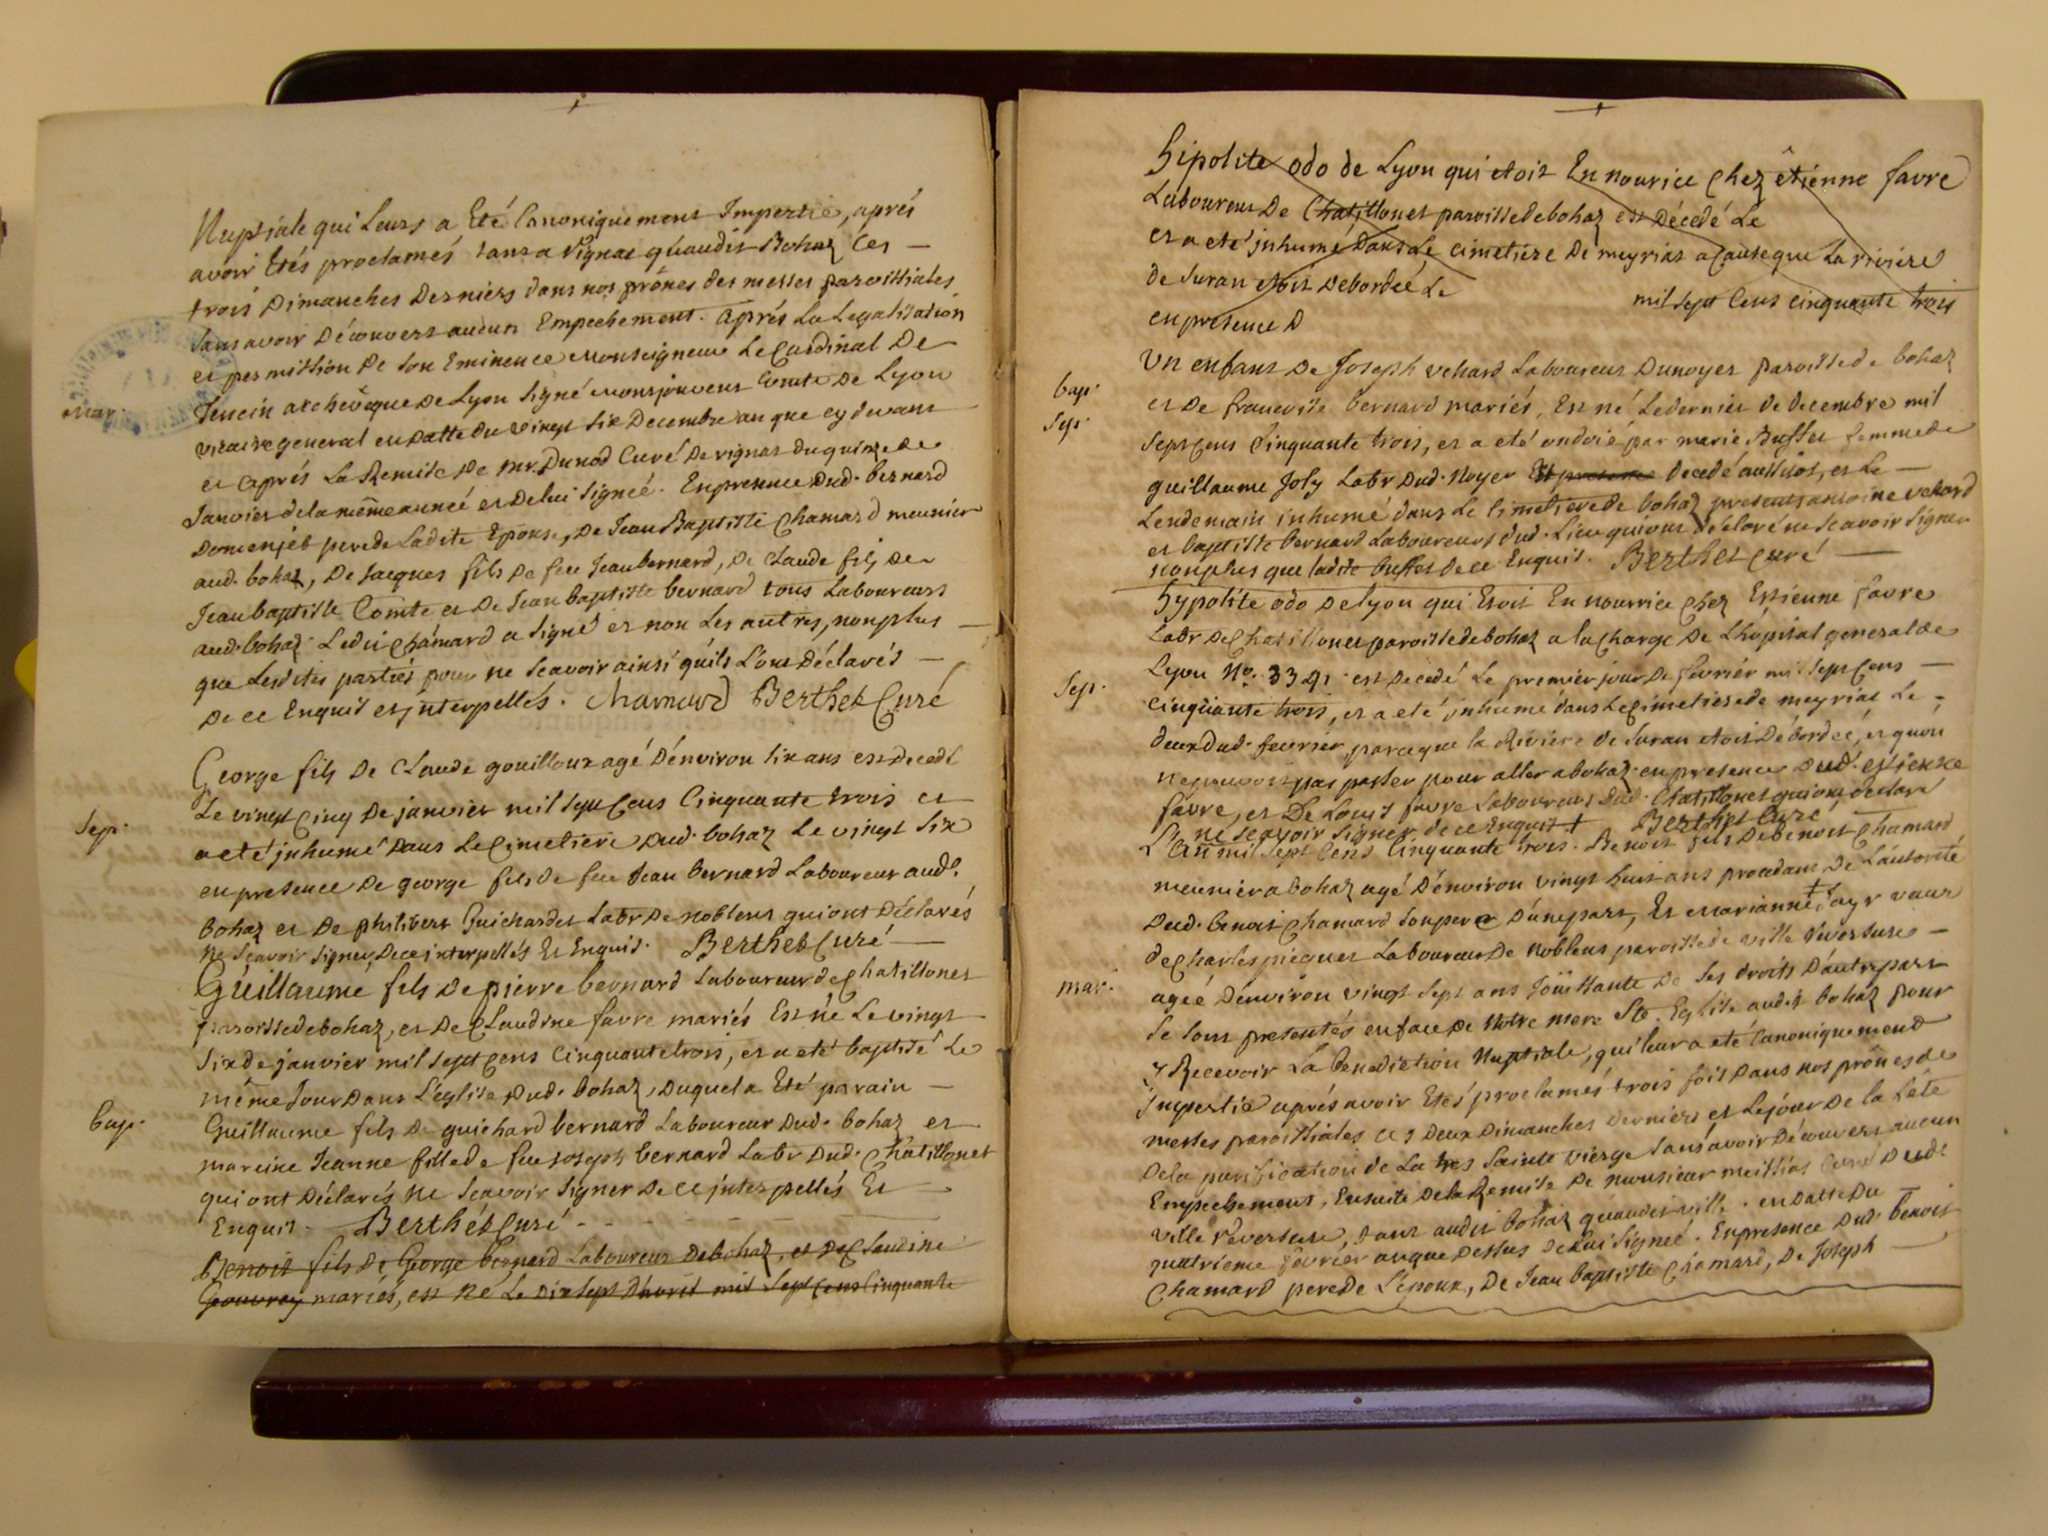 Nuptiale qui Leurs a Eté Canoniquement Impertie, aprés
avoir Etés proclamés tans a vignas qu'audit Bohaz Ces
trois Dimanches Derniers dans nos prônes des messes paroissiales
sans avoir Découvers aucun Empechement. aprés La Legalisation
et permission De son Eminence Monseigneur Le Cardinal De
Mar.
Tencin archevêque De Lyon signé Comte De Lyon
vicaire general en datte du vingt six Decembre an que cy devans
et aprés La Remise De mr. Dunod Curé De vignas du quinze de
Janvier de la même anneé et de lui signeé. En presence Dud. bernard
Domenjet pere de Ladite Epouse, De Jean Baptiste Chamard meunier
aud. bohaz, De Jacques fils De feu Jean bernard, De Claude fils De
Jean baptiste Comte et De Jean baptiste bernard tous Laboureurs
aud. bohaz Ledit Chamard a signé et non Les autres, non plus
que Lesdites parties pour ne scavoir ainsi qu'ils L'ons Déclarés
De ce Enquis et interpellés. Chamard Berthet Curé
George fils De Claude gouilloux agé D'environ six ans est Decedé
Sep.
Le vingt Cinq De janvier mil sept Cens Cinquante trois et
a eté inhumé Dans Le Cimetiere Dud. bohaz Le vingt six
en presence De george fils de feu Jean bernard Laboureur aud.
bohaz et De philibers Guichardet Labr De noblens qui ont Déclarés
Ne scavoir signer De ce interpellés Et Enquis. Berthet Curé
Guillaume fils De pierre bernard Laboureur de Chatillonet
paroisse de bohaz, et De Claudine favre mariés Est né Le vingt
six de janvier mil sept Cens Cinquante trois, et a eté baptisé Le
même Jour Dans L'église Dud. bohaz, Duquel a Eté parain
Bap.
Guillaume fils De guichard bernard Laboureur Dud. bohaz et
mareine Jeanne fille de feu Joseph bernard Labr Dud. Chatillonet
qui ont Déclarés Ne scavoir signer De ce interpellés Et
Enquis. Berthet Curé
Benoit fils De George bernard Laboureur De bohaz, et De Claudine
Gouvrey mariés, est né Le Dix sept D'avril mil sept Cens Cinquante
hipolite odo de Lyon qui etoit En nourice Chez êtienne favre
Laboureur De Chatillonet paroisse de bohaz est Décedé Le
et a eté inhumé Dans Le cimetiere De meyrias a Cause que La riviere
de suran etoit Debordeé Le mil sept Cens cinquante trois
en presence D
Un enfans De Joseph vehard Laboureur Du noyer paroisse de bohaz
bap.
et De bernard mariés, Est né Le dernier de decembre mil
Sep.
sept Cens Cinquante trois, et a eté ondoié par marie Buffet femme de
guillaume Joly Labr Dud. Noyer Decedé aussitot, et Le
Lendemain inhumé dans Le Cimetiere de bohaz presents antoine vehard
et baptiste bernard Laboureurs dud. Lieu qui ont déclaré ne scavoir signer
non plus que ladite buffet de ce Enquis. Berthet Curé
hypolite odo De lyon qui Etoit En nourrice Chez Estienne favre
Labr De Chatillonet paroisse de bohaz a la Charge De L'hopital general de
Sep.
Lyon No. 3391 est Decedé Le premier jour De fevrier mil sept Cens
Cinquante trois, et a eté inhumé dans Le Cimetiere de meyrias Le
deux Dud. fevrier, parceque la Riviere de suran etoit Débordeé, et qu'on
ne pouvoit pas passer pour aller a bohaz. en presence Dud. estienne
favre, et De Louis favre Laboureurs Dud. Chatillonet qui ont declaré
ne scavoir signer de ce Enquis + Berthet Curé
L'an mil sept Cens Cinquante trois. Benoit fils De benoit Chamard
meunier a bohaz agé D'environ vingt huit ans procedant De L'autorité
Dud. benoit Chamard son pere D'une part, Et Marianne + Jayr vauve
de Charles piequet Laboureur De Noblens paroisse de ville Reversure
mar.
ageé D'environ vingt sept ans Joüissante De ses droits D'autre part
se sont presentés en face De Notre mere Ste. Eglise audit bohaz pour
y Recevoir La Benediction Nuptiale, qui leur a eté Canoniquement
impertie aprés avoir Etés proclamés trois fois Dans nos prônes de
messes paroissiales Ces Deux Dimanches derniers et Le jour De la fête
De la purification de La tres sainte vierge sans avoir Découvers aucun
Empechement, Ensuite De la Remise De monsieur meillias Curé Dude
ville Reversure, tans audit bohaz qu'audit ville. en Datte Du
quatrieme fevrier an que Dessus De Lui signeé. En presence Dud. benoit
Chamard pere de L'epoux, De Jean baptiste Chamard, De Joseph